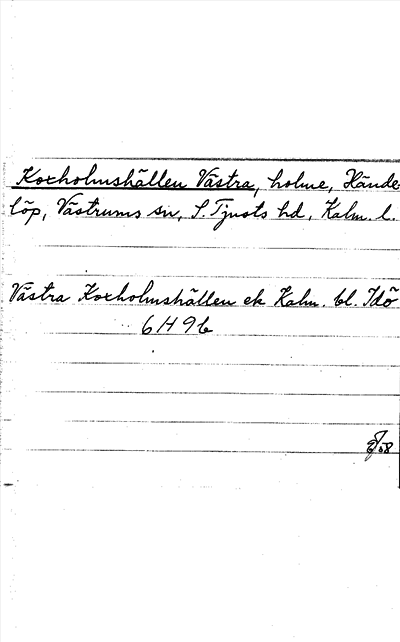 Koxholmshällen Västra, holme, Hände-
löp, Västrums sn, S. Tjusts hd, Kalm. l.
Västra Koxholmshällen ek Kalm. bl. Idö
6H9b